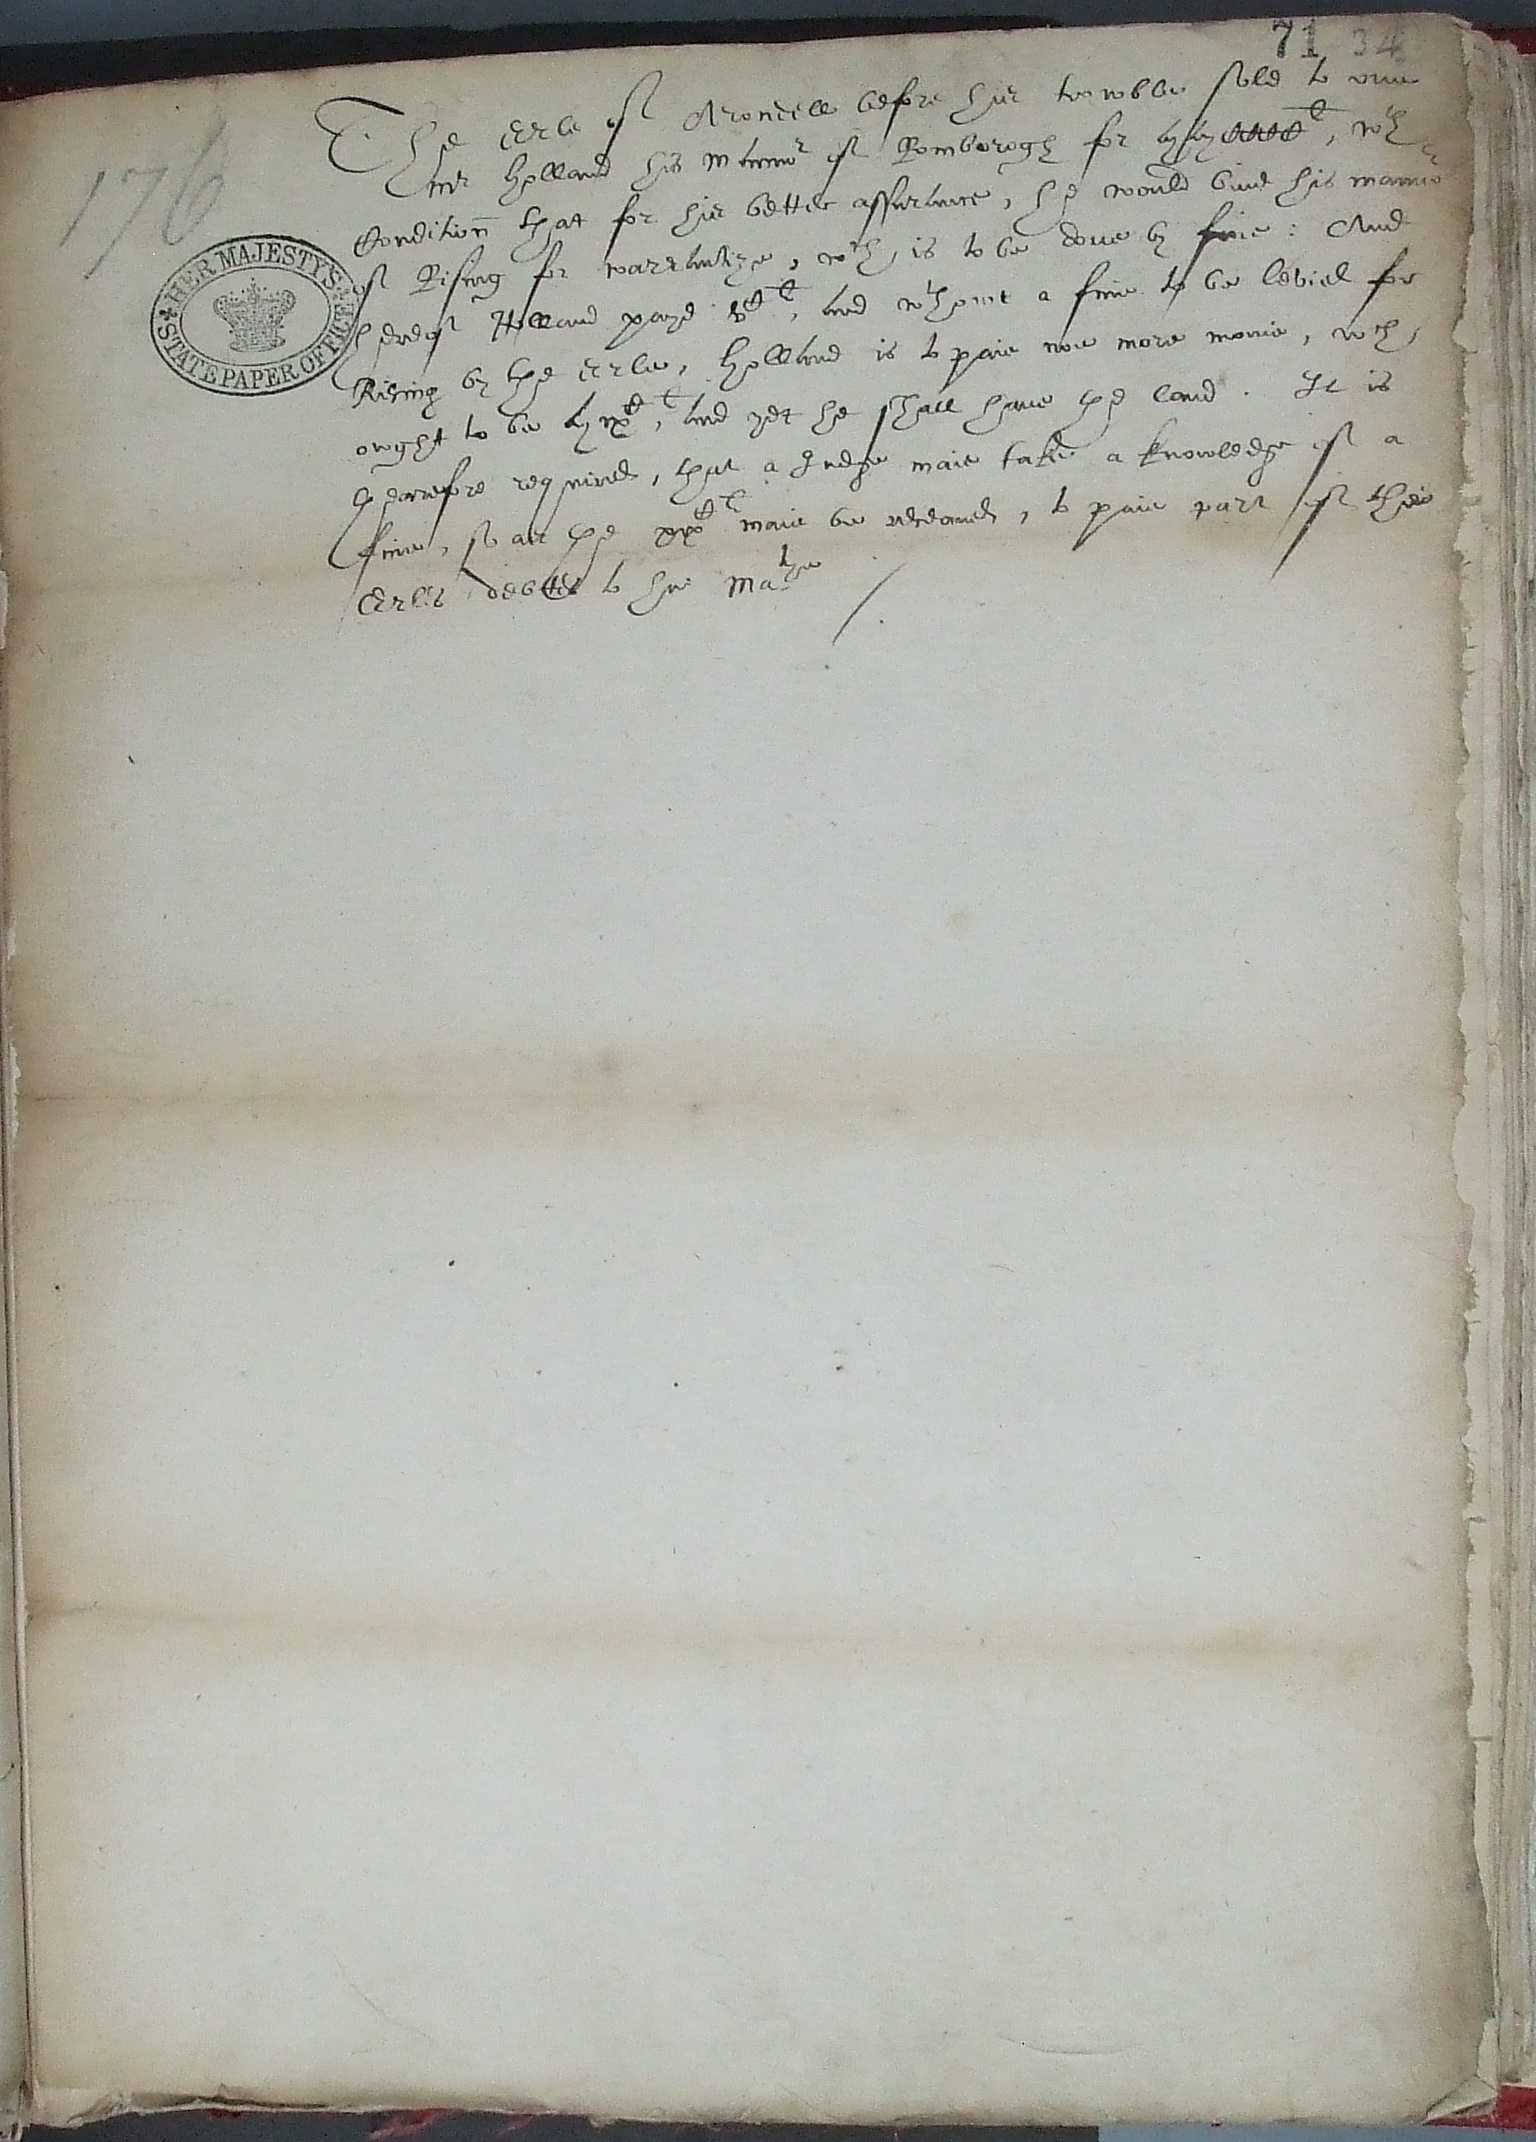 71 34
176
HER MAJESTY'S
STATE PAPER OFFICE
The Erle of Arondell before his trowble sold to one
Mr Holland his Mannor of Romborogh for, wth
Condition that for his better assurance, he would bind his mannor
of Rising for warrantize, wch is to be done by fine: And
hereof Holland payd, and wthowt a fine to be levied for
Rising by the Erle, Holland is to paie noe more monie, wch
owght to be, and yet he shall have the land. It is
therefore required, that a Judge maie take a knowledge of a
fine, so as the maie be, to paie part of the
Erles debtes to her Matie